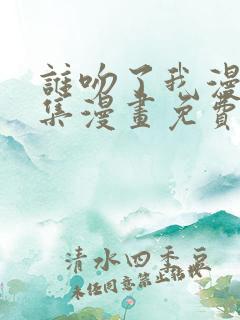 誰吻了我漫
集漫畫免費
清水四季豆
未经同意禁止转载